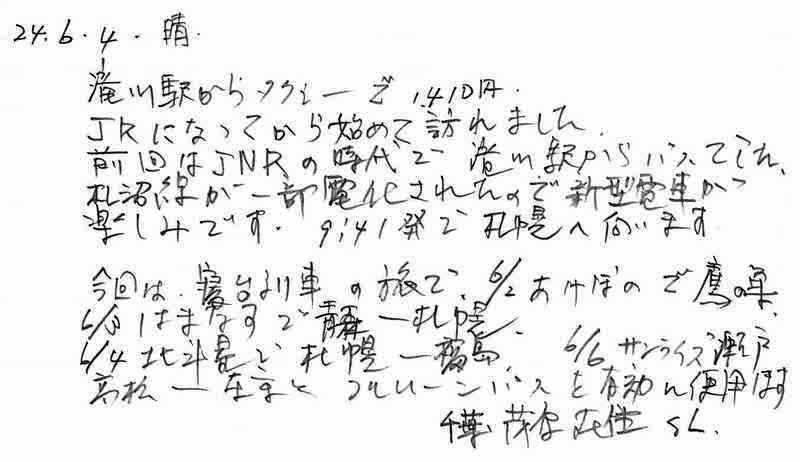 24.6.4. 晴.
滝川駅からタクシーで 1,410円.
JRになってから始めて訪れました.
前回はJNRの時代で 滝川駅からバスでした.
札沼線が一部電化されたので新型電車が
楽しみです. 9:41発で札幌へ向います
今回は 寝台列車の旅で. 6/2 あけぼので鷹の巣.
6/3 はまなすで青森ー札幌
6/4 北斗星で 札幌ー福島. 6/6 サンライズ瀬戸
高松ー東京と フルムーンパスを有効に使用します
千葉. 茂原在住 S.L.